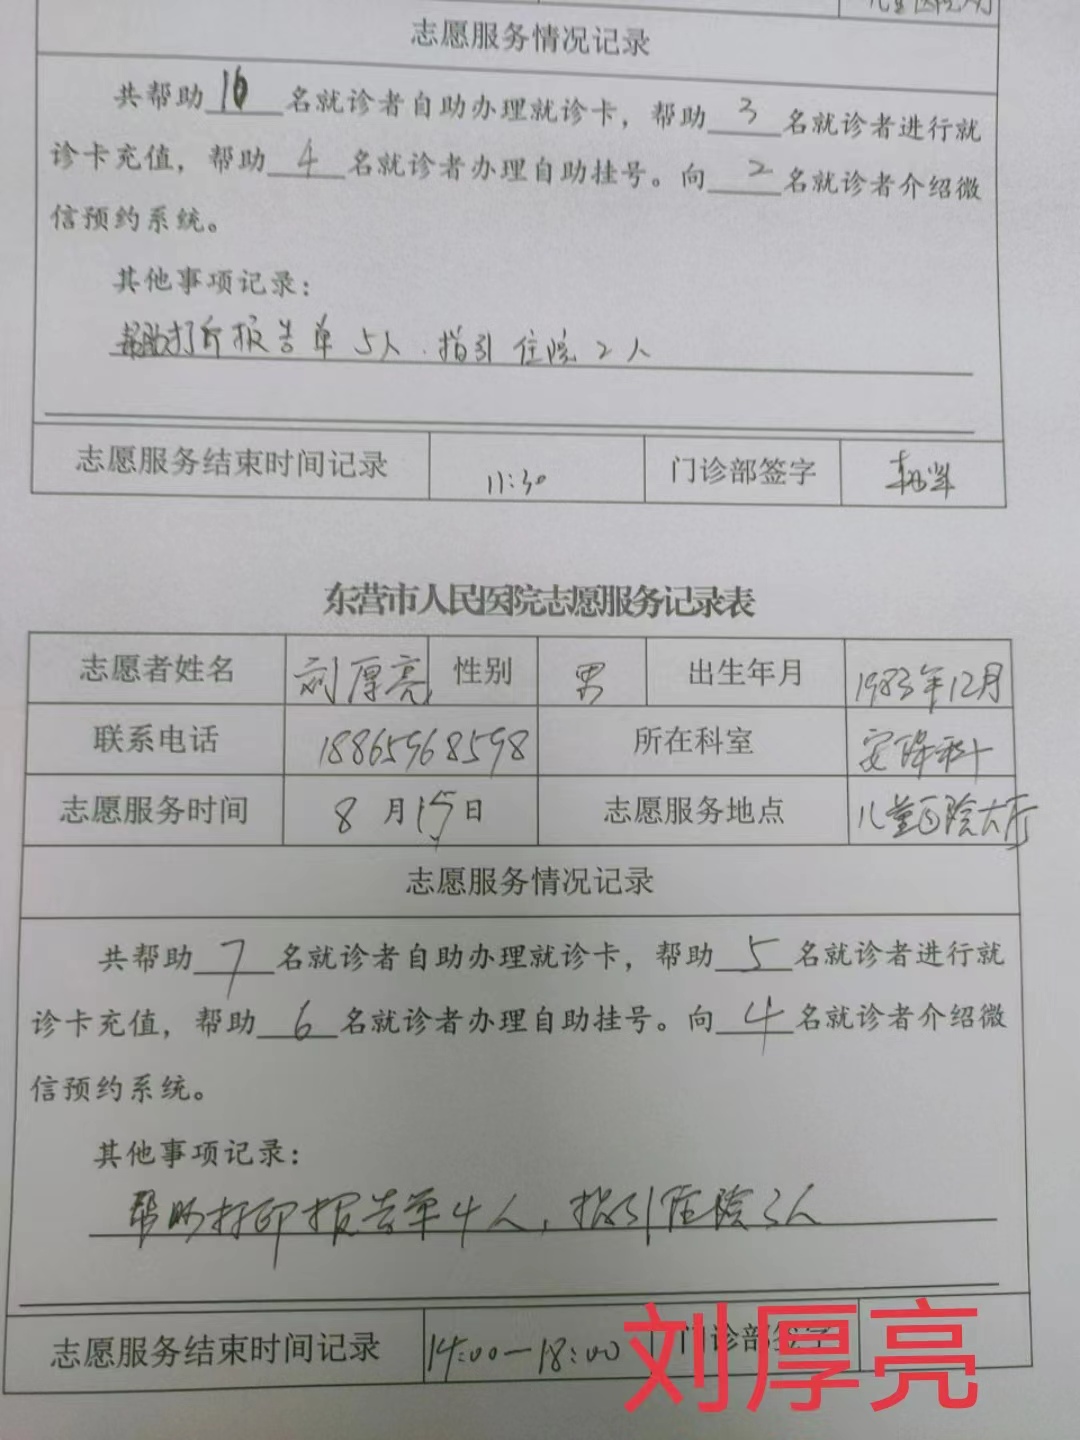 志愿服务情况记录
共帮助 10 名就诊者自助办理就诊卡，帮助 3 名就诊者进行就
诊卡充值，帮助 4 名就诊者办理自助挂号。向 2 名就诊者介绍微
信预约系统。
其他事项记录：
帮助打印报告单5人.指引住院2人
志愿服务结束时间记录 11:30 门诊部签字
东营市人民医院志愿服务记录表
志愿者姓名 刘厚亮 性别 男 出生年月 1983年12月
联系电话 18865968598 所在科室 安保科
志愿服务时间 8月15日 志愿服务地点 儿童医院大厅
志愿服务情况记录
共帮助 7 名就诊者自助办理就诊卡，帮助 5 名就诊者进行就
诊卡充值，帮助 6 名就诊者办理自助挂号。向 4 名就诊者介绍微
信预约系统。
其他事项记录：
帮助打印报告单4人，指引住院3人
志愿服务结束时间记录 14:00—18:00 门诊部签字
刘厚亮